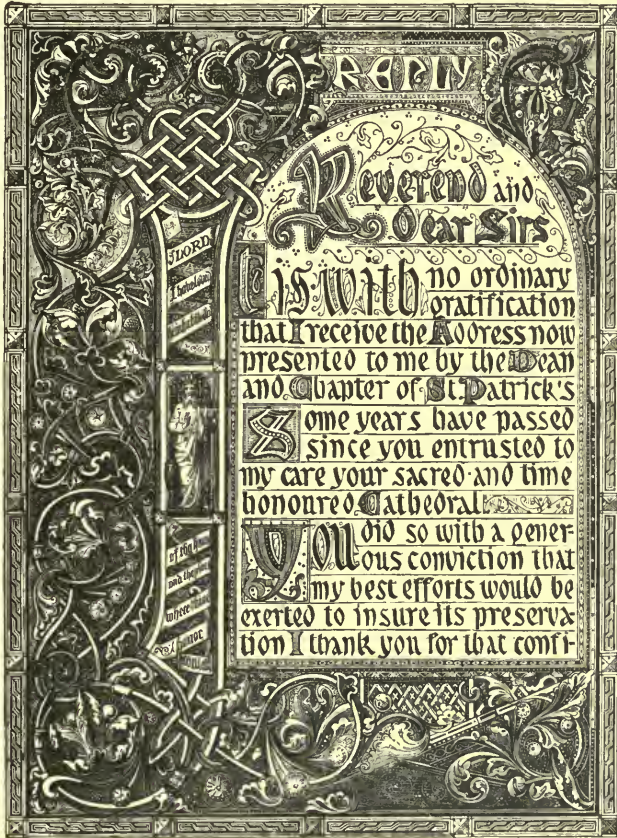 REPLY
Reverend and
Dear Sirs
It is with no ordinary
gratification
that I receive the Address now
presented to me by the Dean
and Chapter of St. Patrick's
Some years have passed
since you entrusted to
my care your sacred and time
honoured Cathedral
You did so with a gener-
ous conviction that
my best efforts would be
exerted to insure its preserva-
tion I thank you for that confi-
LORD
I have loved
of thy house
and the place
where
honour